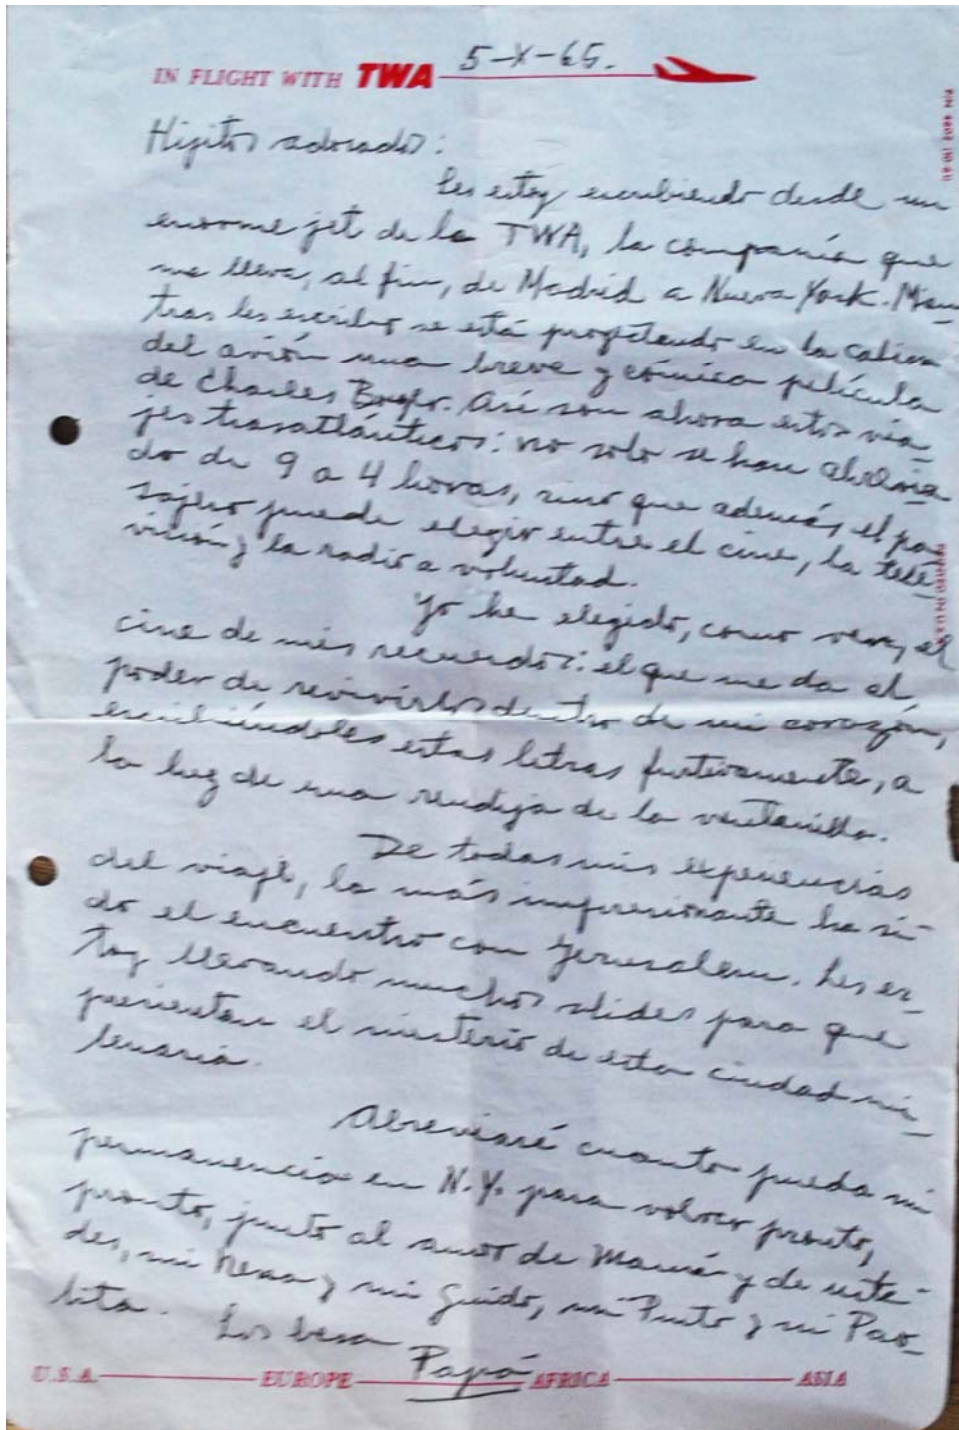 IN FLIGHT WITH TWA 5-X-65.
Hijitos adorados:
Les estoy escribiendo desde un
enorme jet de la TWA, la compañía que
me lleva, al fin, de Madrid a Nueva York. Mien-
tras les escribo se está proyectando en la cabina
del avión una breve y cómica película
de Charles Boyer. Así son ahora estos via-
jes trasatlánticos: no solo se han abrevia
do de 9 a 4 horas, sino que además, el pa-
sajero puede elegir entre el cine, la tele-
visión y la radio a voluntad.
Yo he elegido, como ven, el
cine de mis recuerdos: el que me da el
poder de revivirlos dentro de mi corazón,
escribiéndoles estas letras furtivamente, a
la luz de una rendija de la ventanilla.
De todas mis experiencias
del viaje, la más impresionante ha si-
do el encuentro con Jerusalem. Les es-
toy llevando muchos slides para que
presientan el misterio de esta ciudad mi-
lenaria.
Abreviaré cuanto pueda mi
permanencia en N.Y. para volver pronto,
pronto, junto al amor de Mamá y de uste-
des, mi Nena y mi Guido, mi
Los besa
Papá
U.S.A. EUROPE AFRICA ASIA